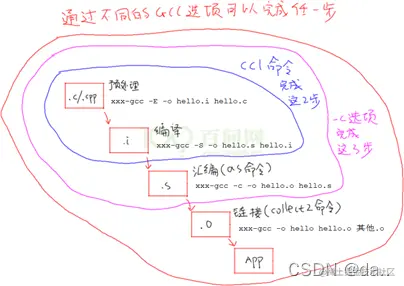 通过不同的gcc选项可以完成任一步
cc1命令
完成
这2步
预处理
.c/.cpp
xxx-gcc -E -o hello.i hello.c
编译
.i
xxx-gcc -S -o hello.s hello.i
-c选项
完成
这3步
汇编(as命令)
.s
xxx-gcc -c -o hello.o hello.s
链接(collect2命令)
.o
xxx-gcc -o hello hello.o 其他.o
APP
百问网
CSDN @da..